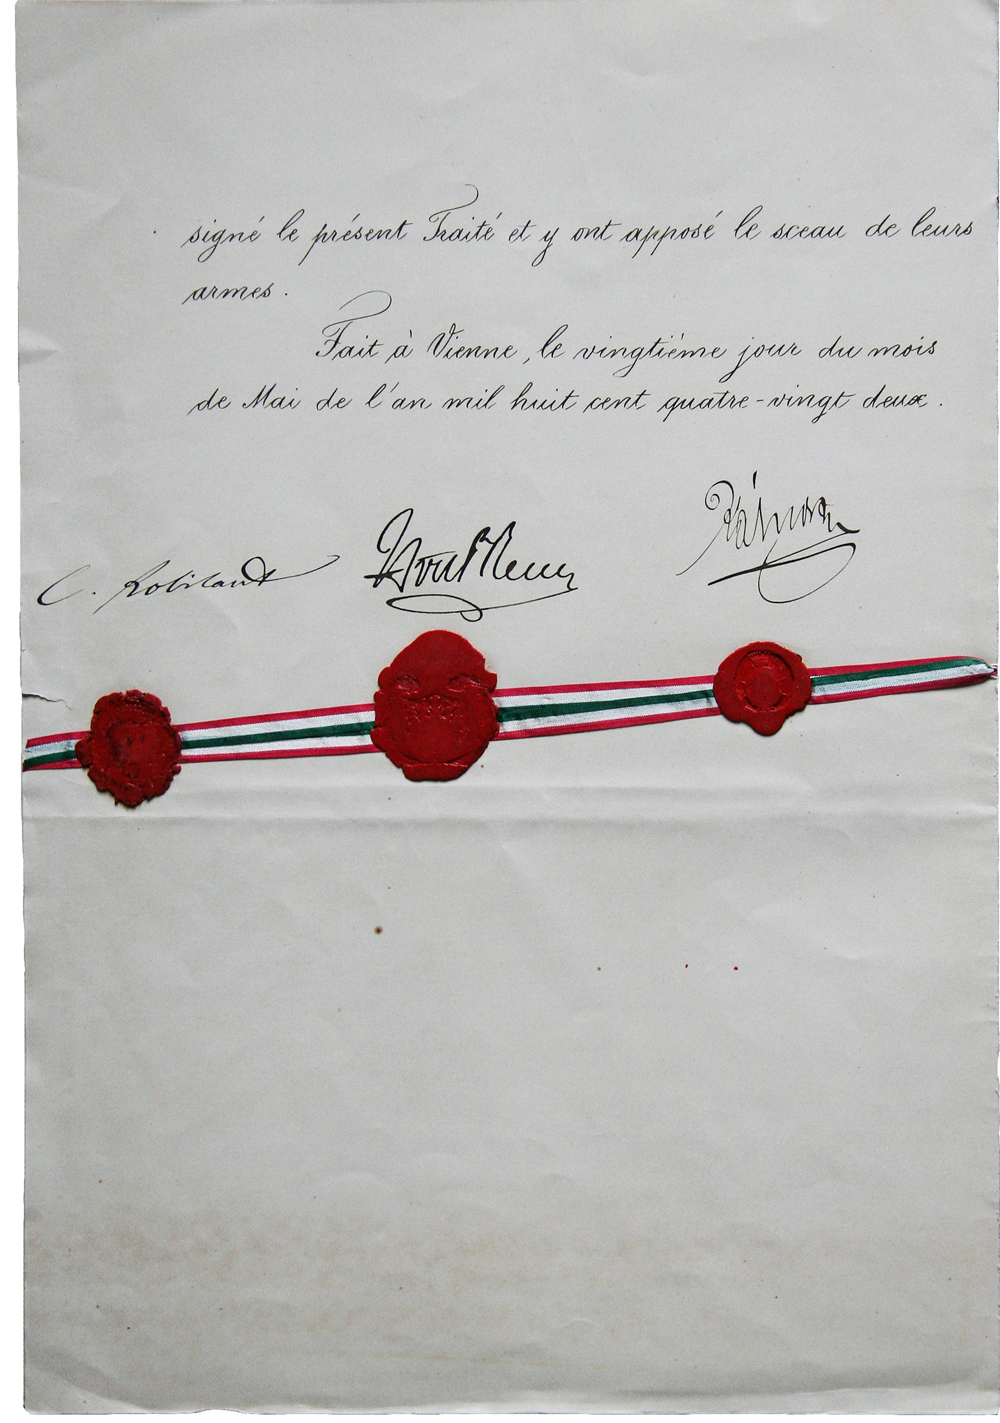 signé le présent Traité et y ont apposé le sceau de leurs
armes.
Fait à Vienne, le vingtième jour du mois
de Mai de l'an mil huit cent quatre-vingt deux.
C. Robilant